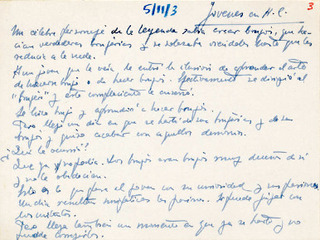 5/11/3
Jóvenes en A.C.
3
Un célebre personaje de la leyenda sabía crear brujos, que ha-
cían verdaderas brujerías y se volvían hasta que los
reducía a la nada.
A un joven que le veía le entró la ilusión de aprender el arte
de hacer brujos. Efectivamente se dirigió al
"brujo" y éste complaciente le enseñó.
Se hizo brujo y aprendió a hacer brujos.
Pero llegó un día en que se hartó de sus brujerías y de sus
brujos y quiso acabar con aquellos demonios.
¿Qué le ocurrió?
Que ya no podía. Los brujos eran brujos muy dueños de sí
y no le obedecían.
Esto es lo que pasa al joven con su curiosidad y sus pasiones.
Un día resultan simpáticas las pasiones. Se puede jugar con
sus cuidados.
Pero llega también un momento en que ya se harta y no
puede